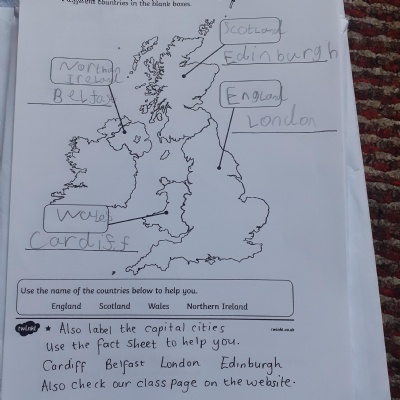 different countries in the blank boxes.
Scotland
Edinburgh
Northern
Ireland
Belfas
England
London
Wales
Cardiff
Use the name of the countries below to help you.
England Scotland Wales Northern Ireland
twinkl * Also label the capital cities twinkl.co.uk
Use the fact sheet to help you.
Cardiff Belfast London Edinburgh
Also check our class page on the website.